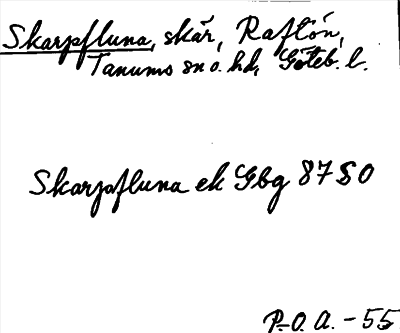 Skarpfluna, skär, Raftön,
Tanums sn o. hd, Göteb. l.
Skarpfluna ek Gbg 87 SO
P.O.A. - 55